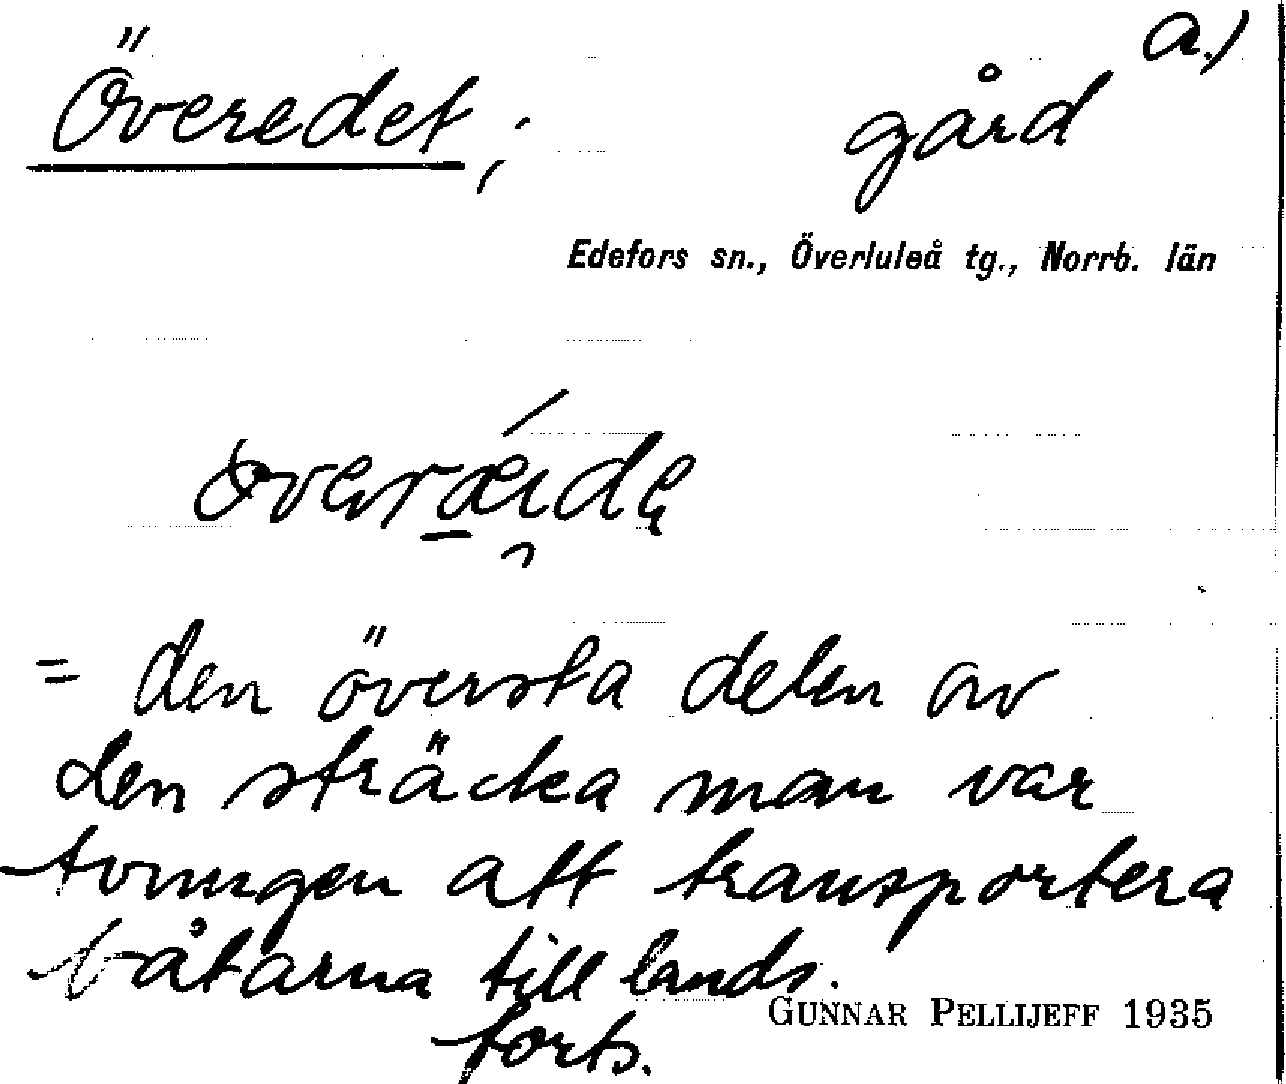 a.)
Överedet; gård
Edefors sn., Överluleå tg., Norrb. län
= den översta delen av
den sträcka man var
tvungen att transportera
båtarna till lands.
GUNNAR PELLIJEFF 1935
forts.